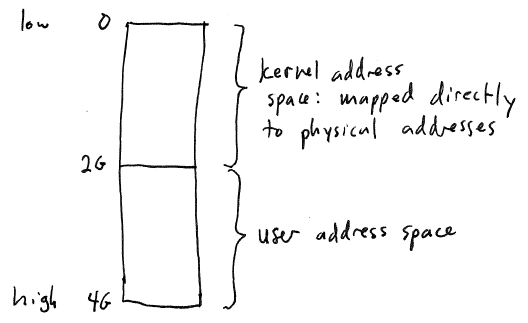 low 0
kernel address
space: mapped directly
to physical addresses
2G
user address space
high 4G